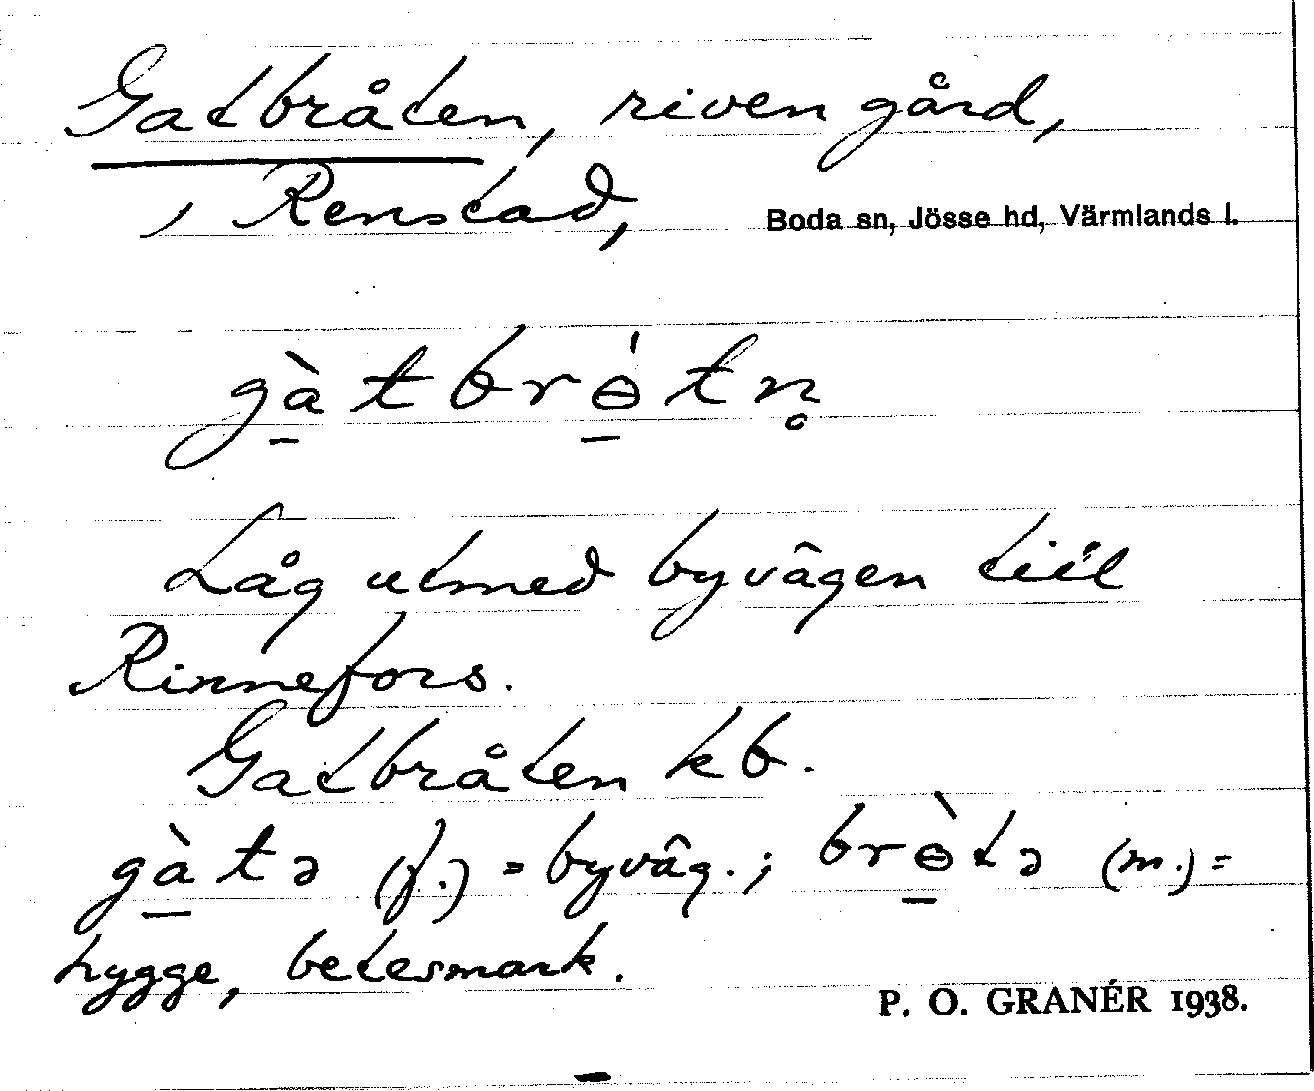 Gatbråten, riven gård,
i Renstad, Boda sn, Jösse hd, Värmlands l.
gàtbrɵ́tn̥
Låg utmed byvägen till
Rinnefors.
Gatbråten kb.
gàtə (f.) = byväg.; brɵ̀tə (m.) =
hygge, betesmark.
P. O. GRANÉR 1938.